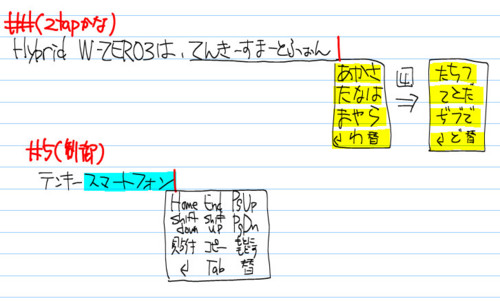 #4(2tapかな)
Hybrid W-ZERO3は、てんきーすまーとふぉん
あかさ
たなは
まやら
↲わ替
4
⇒
たちつ
てとだ
ぢづで
↲ど替
#5(制御)
テンキースマートフォン
Home End PgUp
Shift down Shift up PgDn
貼付 コピー
↲ Tab 替